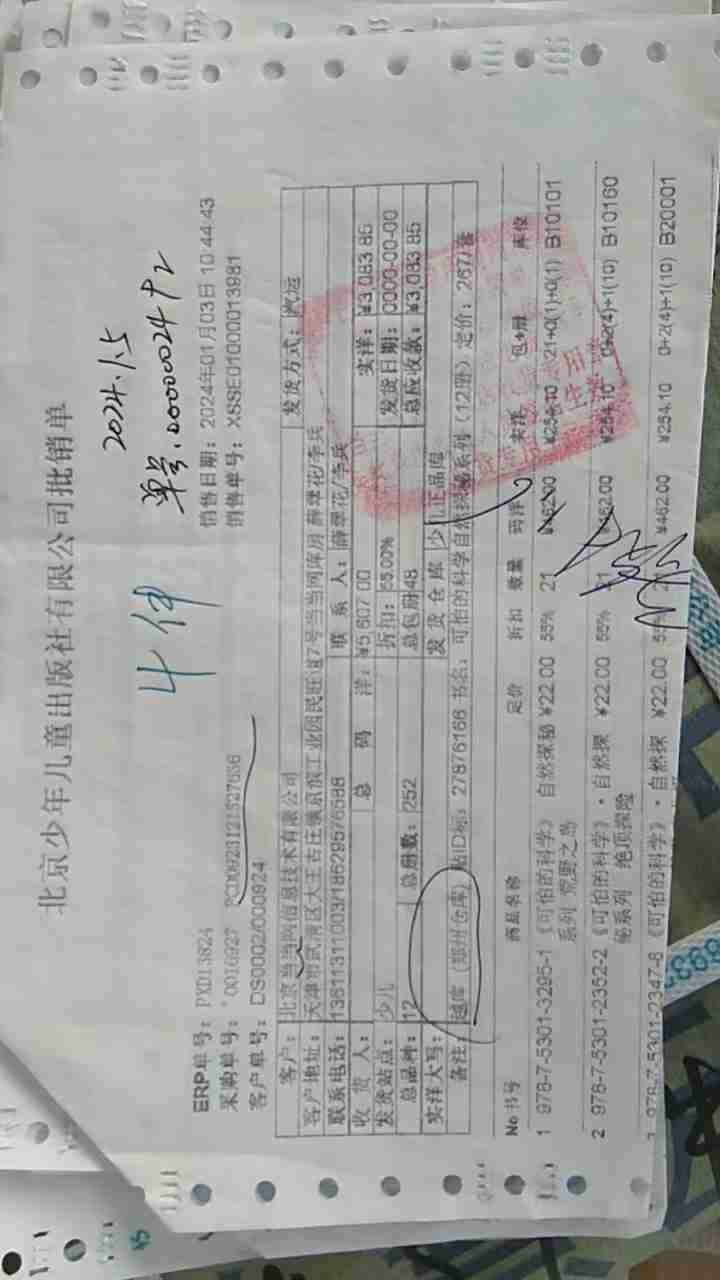 北京少年儿童出版社有限公司批销单
2024.1.5
单号:00000024
4件
ERP单号: PXD13824 销售日期: 2024年01月03日 10:44:43
采购单号: 销售单号: XSSE01000013981
客户单号: DS0002/000924
客户: 北京当当网信息技术有限公司 发货方式: 汽运
客户地址: 天津市武清区大王古庄镇京滨工业园民旺道7号当当网库房
联系电话: 13811311003/18629576588 联系人:
收货人: 总码洋: ¥5,607.00 实洋: ¥3,083.85
发货站点: 少儿 折扣: 55.00% 发货日期: 0000-00-00
总品种: 12 总册数: 252 总包册 48 总应收款: ¥3,083.85
实洋大写: 发货仓库 少儿正品库
备注: 越库(郑州仓库) 27876166 书名: 可怕的科学自然探秘系列(12册) 定价: 267/套
No 书号 商品名称 定价 折扣 数量 码洋 实洋 包+册 库位
1 978-7-5301-3295-1 《可怕的科学》 自然探秘 ¥22.00 55% 21 ¥462.00 ¥254.10 21+0(1)+0(1) B10101
系列 荒野之岛
2 978-7-5301-2352-2 《可怕的科学》·自然探 ¥22.00 55% 21 ¥462.00 ¥254.10 0+2(4)+1(10) B10160
秘系列 绝顶探险
3 978-7-5301-2347-8 《可怕的科学》·自然探 ¥22.00 55% ¥462.00 ¥254.10 0+2(4)+1(10) B20001